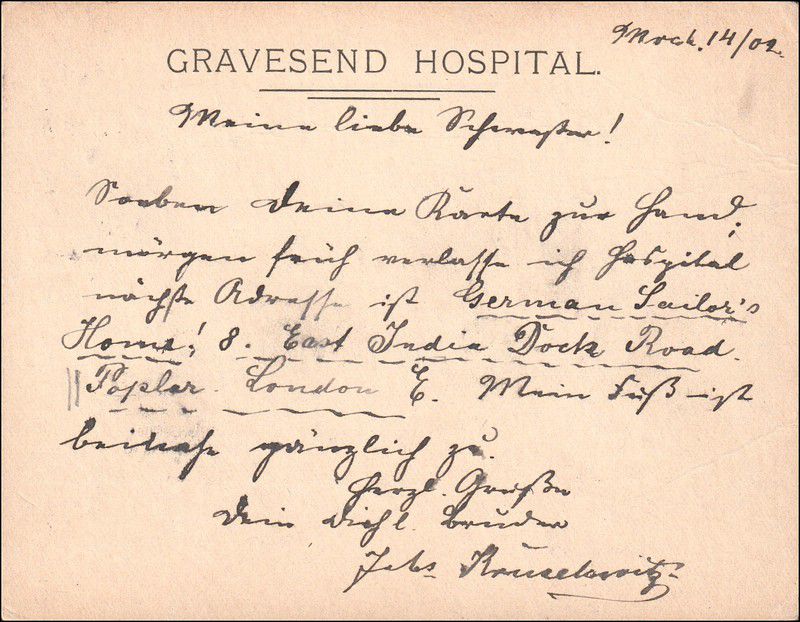 March. 14/02.
GRAVESEND HOSPITAL.
Meine liebe Schwester!
Soeben Deine Karte zur Hand,
morgen früh verlasse ich Hospital
nächste Adresse ist German Sailor's
Home! 8. East India Dock Road.
Poplar. London E. Mein Fuß ist
beinahe gänzlich zu.
Herzl. Grüße
Dein Bruder